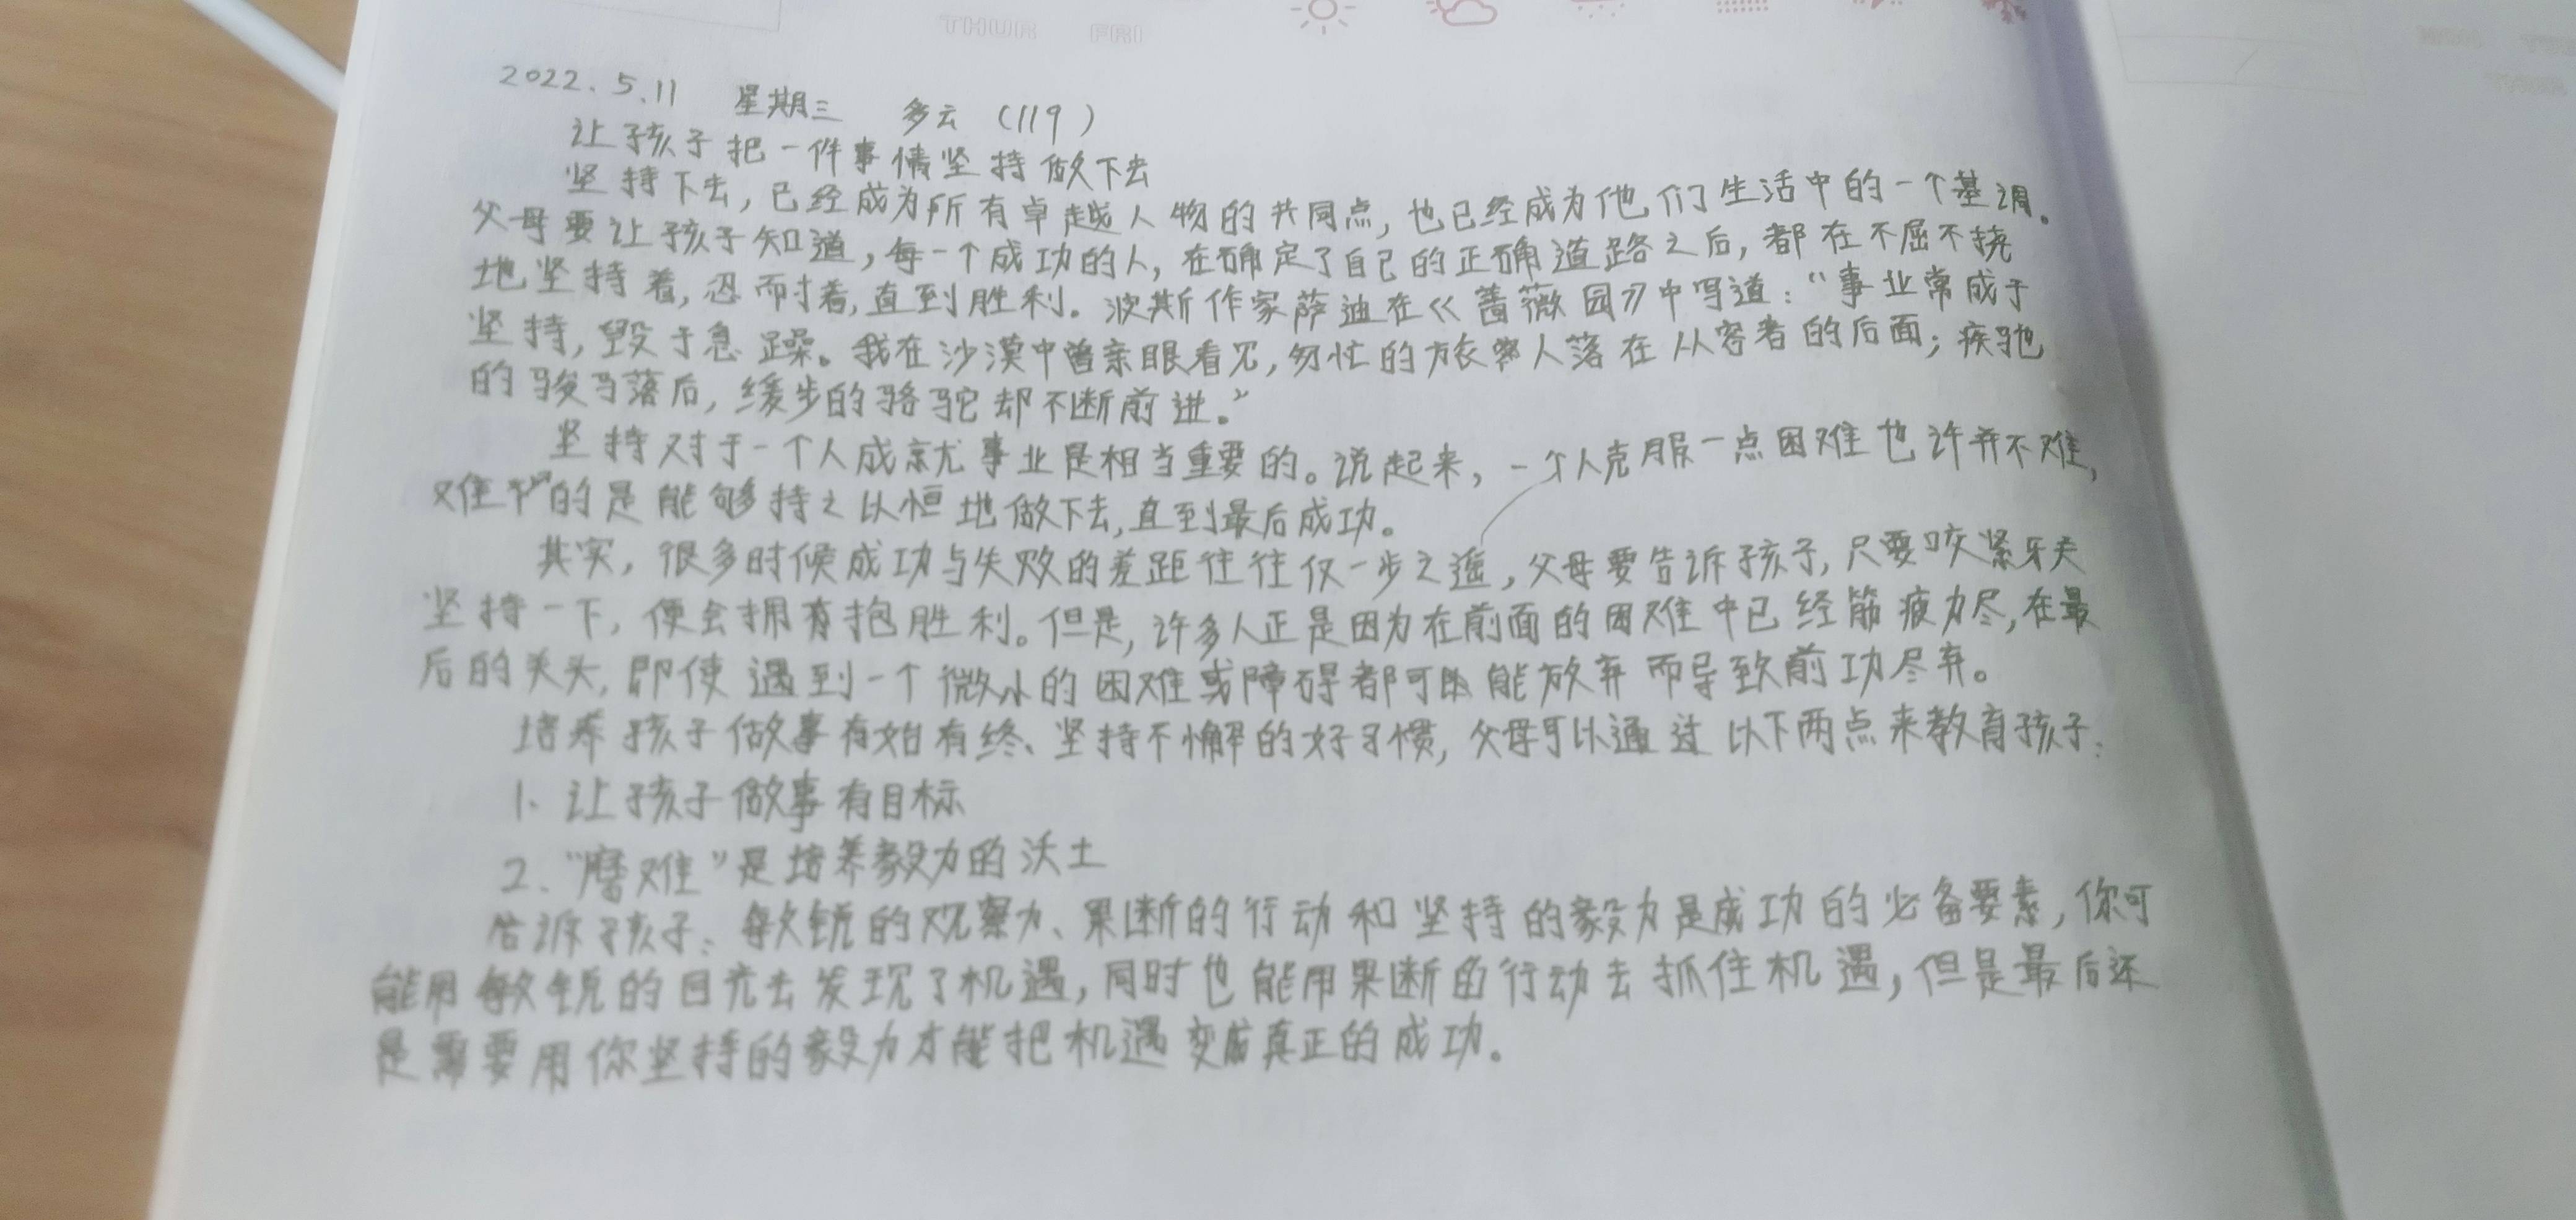 THUR FRI
2022.5.11 星期三 多云 (119)
让孩子把一件事情坚持做下去
坚持下去,已经成为所有卓越人物的共同点,也已经成为他们生活中的一个基调。
父母要让孩子知道,每一个成功的人,在确定了自己的正确道路之后,都在不屈不挠
地坚持着,忍耐着,直到胜利。波斯作家萨迪在《蔷薇园》中写道:“事业常成于
坚持,毁于急躁。我在沙漠中曾亲眼看见,匆忙的旅人落在从容者的后面;疾驰
的骏马落后,缓步的骆驼却不断前进。”
坚持对于一个人成就事业是相当重要的。说起来,一个人克服一点困难也许并不难,
难的是能够持之以恒地做下去,直到最后成功。
其实,很多时候成功与失败的差距往往仅一步之遥,父母要告诉孩子,只要咬紧牙关
坚持一下,便会拥有抱胜利。但是,许多人正是因为在前面的困难中已经筋疲力尽,在最
后的关头,即使遇到一个微小的困难或障碍都可能放弃而导致前功尽弃。
培养孩子做事有始有终、坚持不懈的好习惯,父母可以通过以下两点来教育孩子:
1、让孩子做事有目标
2、“磨难”是培养毅力的沃土
告诉孩子:敏锐的观察力、果断的行动和坚持的毅力是成功的必备要素,你可
能用敏锐的目光去发现了机遇,同时也能用果断的行动去抓住机遇,但是最后还
是需要用你坚持的毅力才能把机遇变成真正的成功。